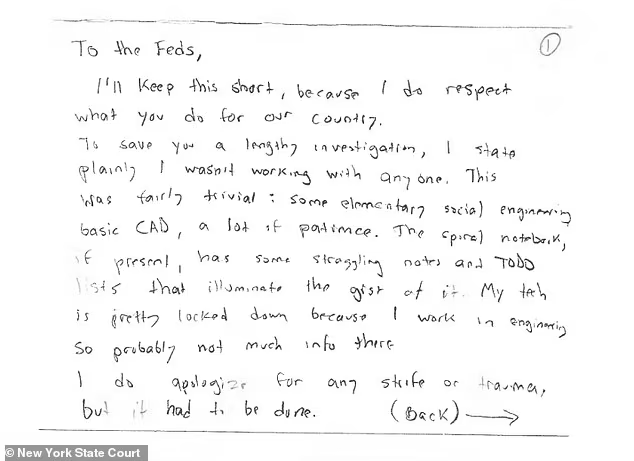 To the Feds, ①
I'll keep this short, because I do respect
what you do for our country.
To save you a lengthy investigation, I state
plainly I wasn't working with anyone. This
was fairly trivial: some elementary social engineering
basic CAD, a lot of patience. The spiral notebook,
if present, has some straggling notes and TODO
lists that illuminate the gist of it. My tech
is pretty locked down because I work in engineering
so probably not much info there
I do apologize for any strife or trauma,
but it had to be done. (Back) →
© New York State Court